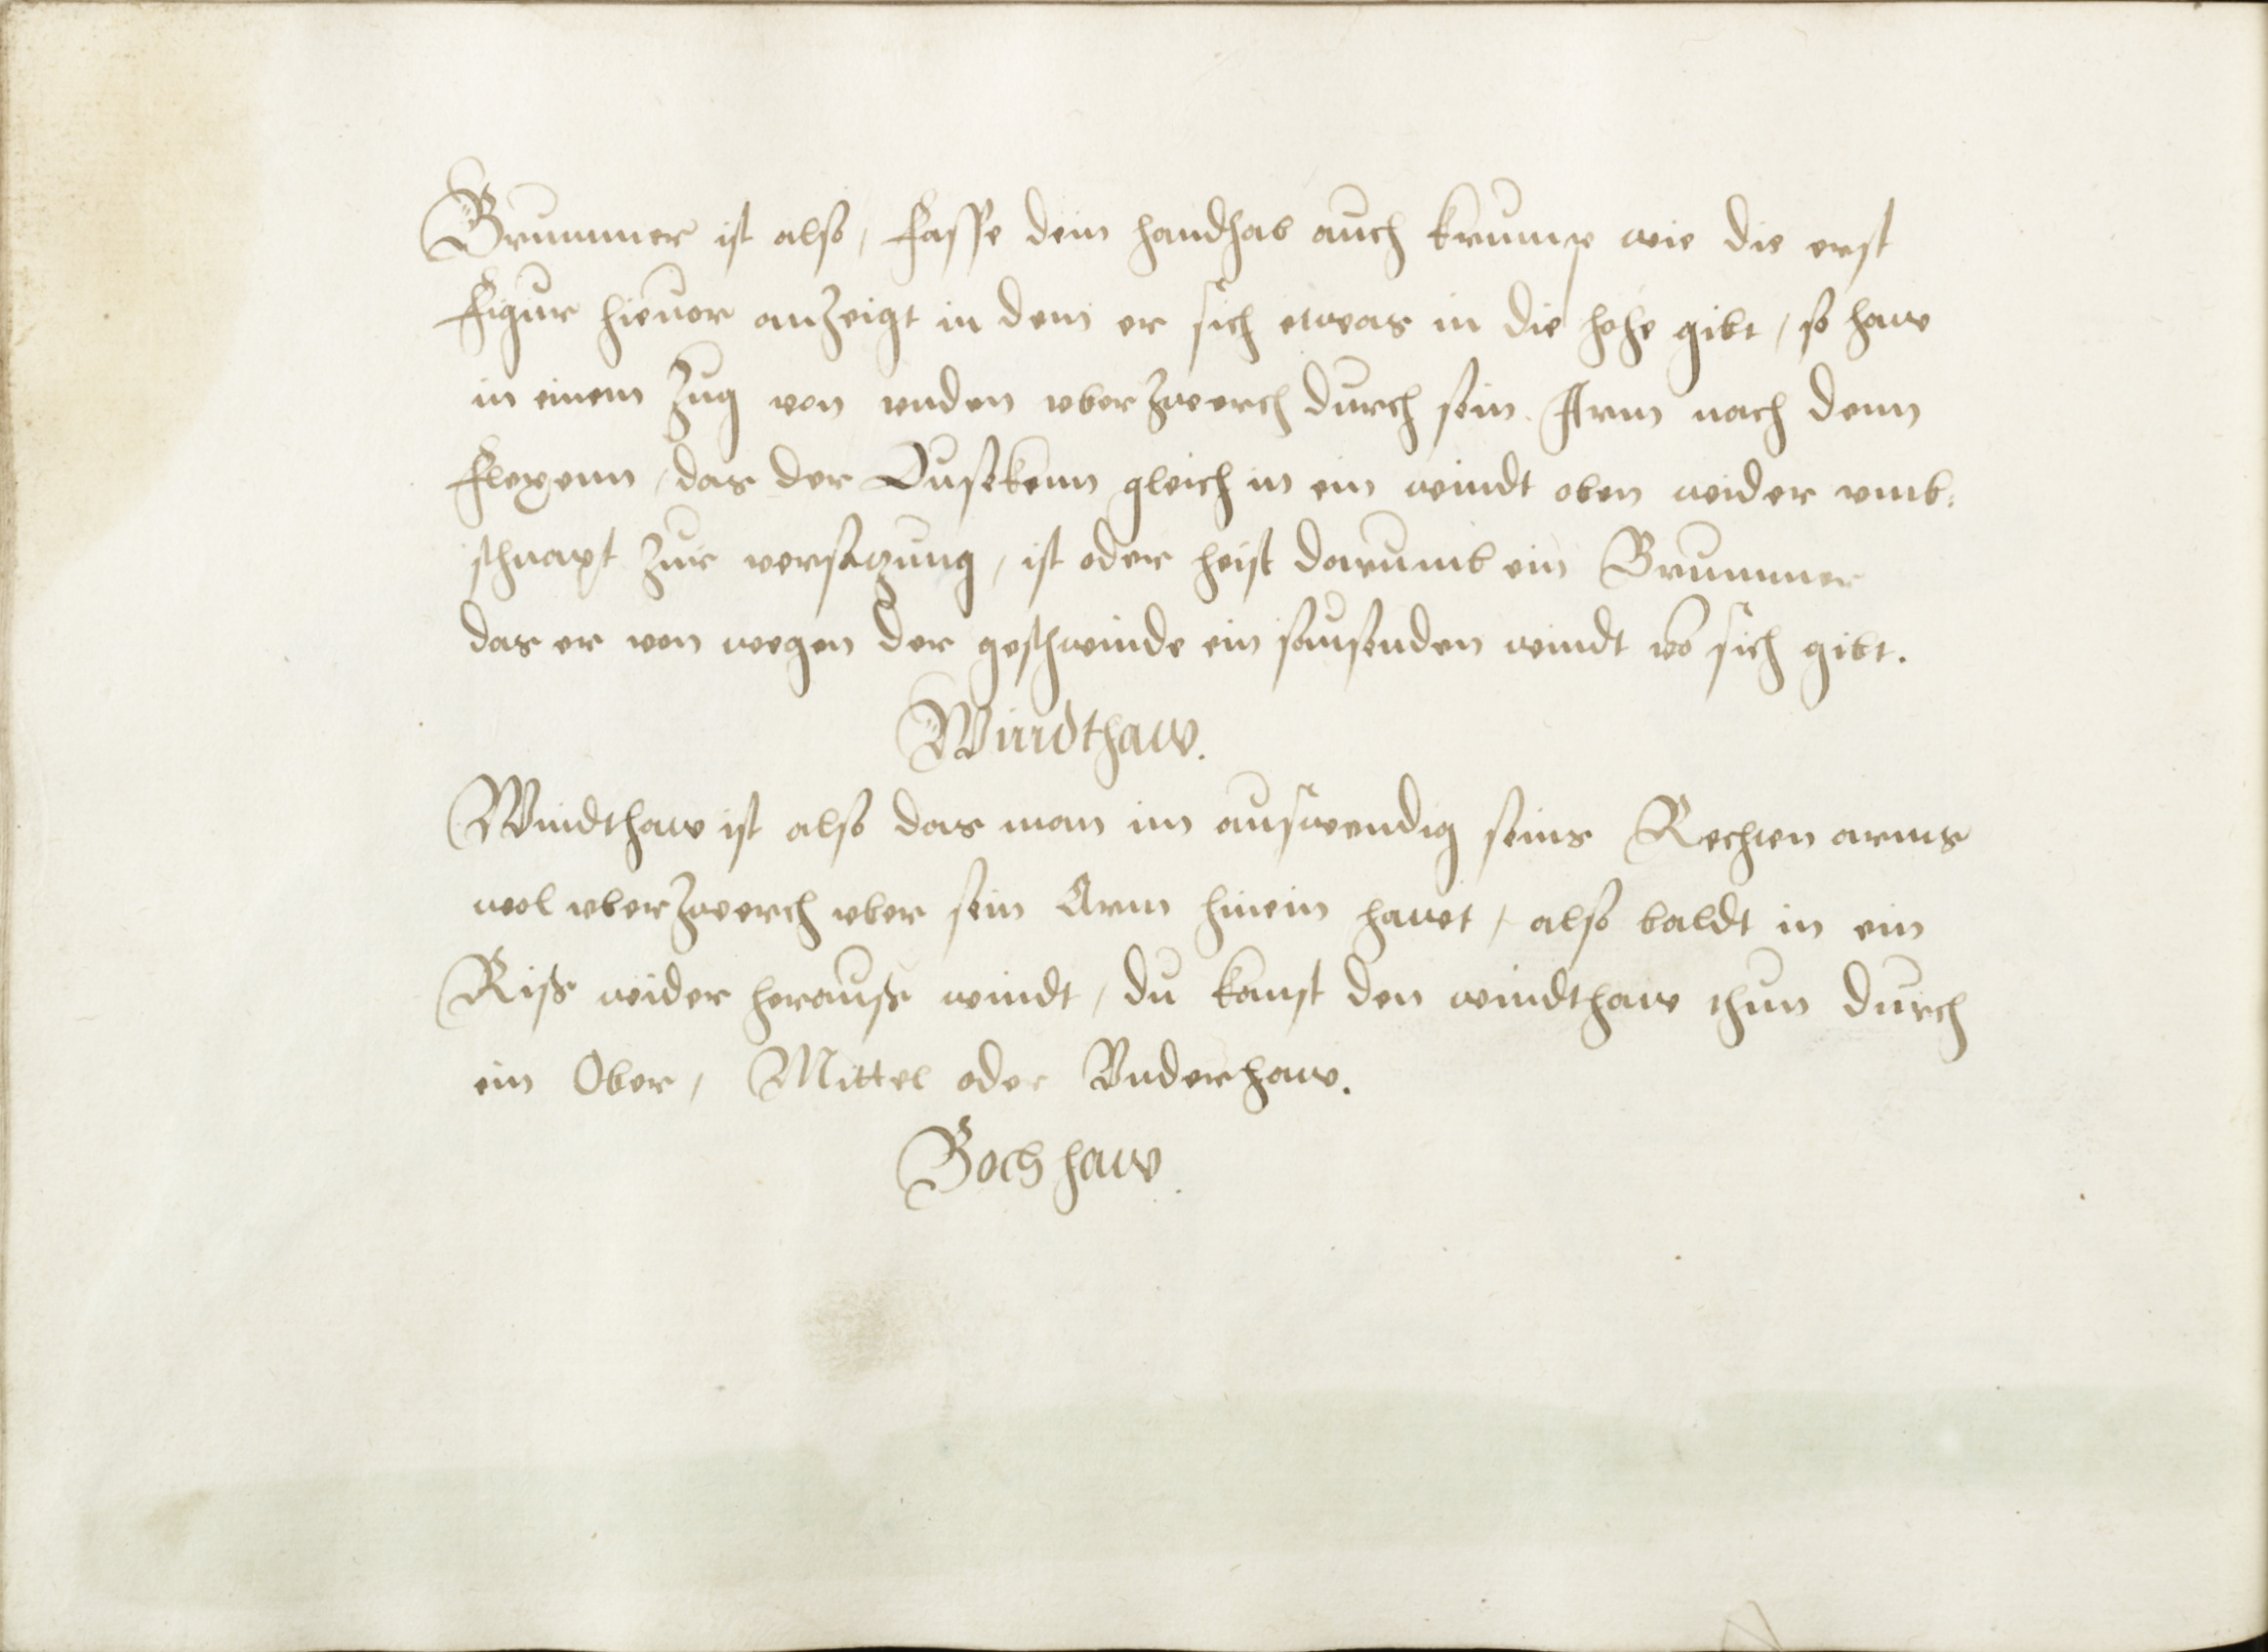 Brummer ist also, fasse dein handhab auch krump wie die erst
figur hieuor anzeigt in dem er sich etwas in die hohe gibt, so haw
in einem Zug von vnden vberzwerch durch sein Arm nach denn
flexenn, das der Dusekenn gleich in ein windt oben wider vmb:
schnapt zur versatzung, ist oder heist darumb ein Brummer
das er von wegen der geschwinde ein sausenden windt vō sich gibt.
Windthaw.
Windthaw ist also das man im auswendig seins Rechten arms
wol vberzwerch vber sein Arm hinein hawet, also baldt in ein
Riss wider herauss windt, du kanst den windthaw thun durch
ein Ober, Mittel oder Vnderhaw.
Bochhaw.